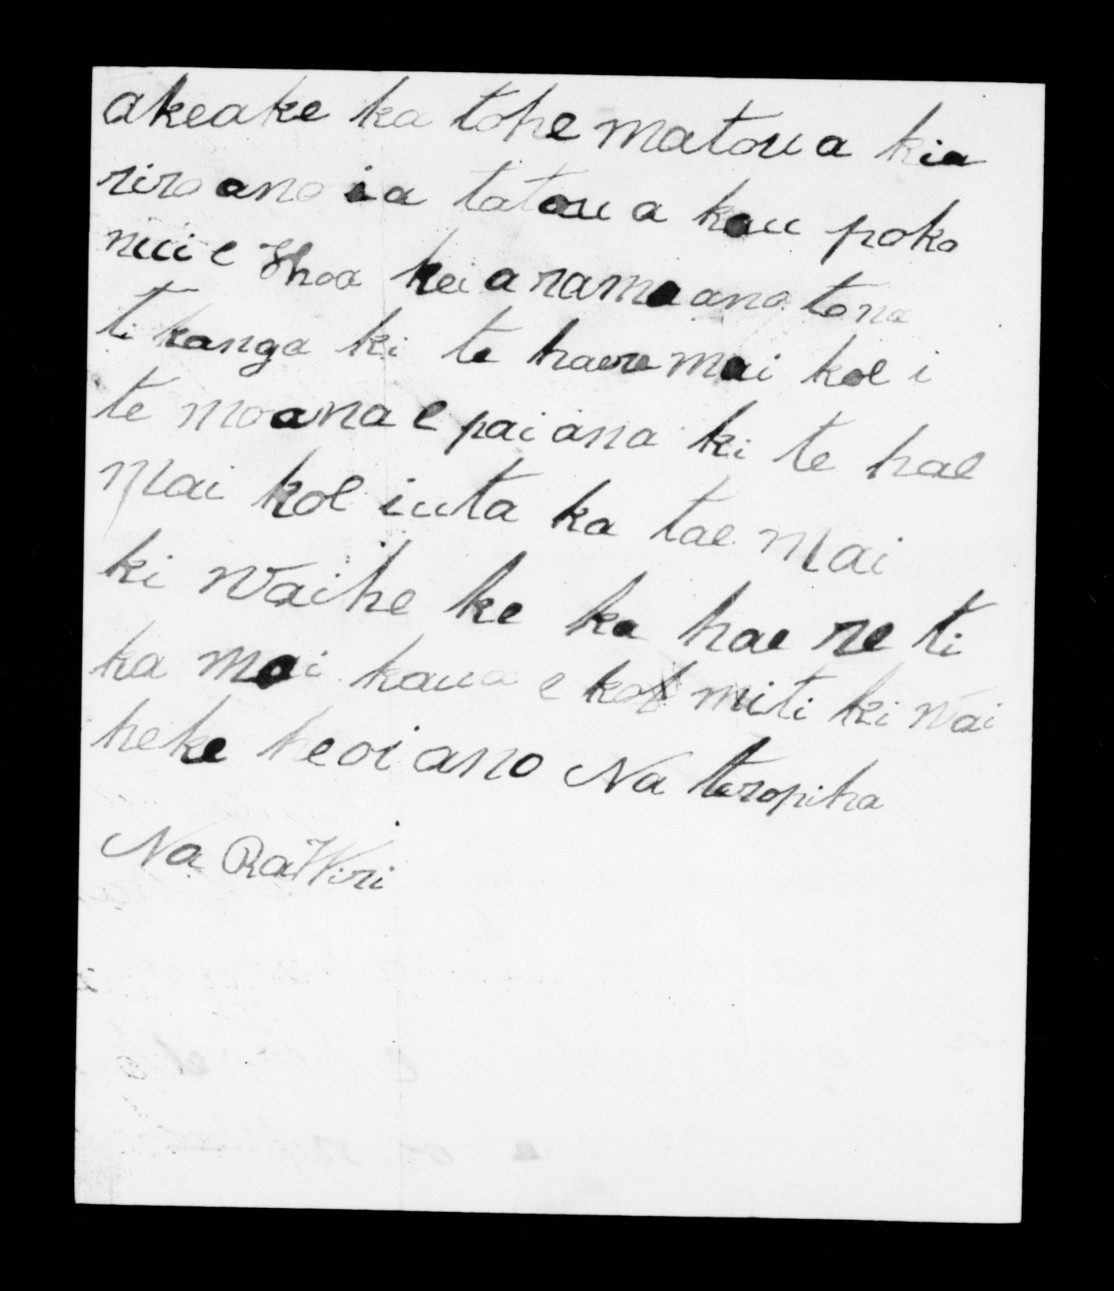 akeake ka tohe matou a kia
riro ano ia tatou a kau poko
nui e Hoa kei a rama ano tona
ti kanga ki te haere mai koe i
te moana e pai ana ki te hae
mai koe i uta ka tae mai
ki Waihe ke ka hae re ti
ka mai kaua e ko miti ki Wai
heke heoi ano Na teropiha
Na RaWiri